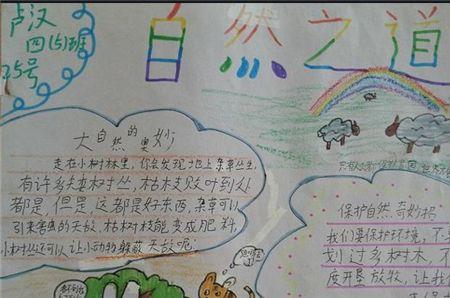 卢汉
四(5)班
25号
自然之道
大自然的奥妙
走在小树林里，你会发现地上杂草丛生，
有许多矮树丛，枯枝败叶到处
都是，但是，这都是好东西，杂草可以
引来害虫的天敌，枯树枝能变成肥料，
小树丛还可以让小动物躲蔽天敌呢！
保护自然奇妙招
我们要保护环境，不
划过多树木，不
度开垦放牧，让我